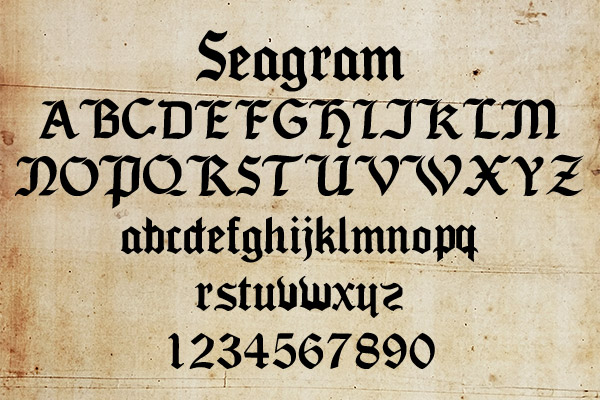 Seagram
ABCDEFGHIJKLM
NOPQRSTUVWXYZ
abcdefghijklmnopq
rstuvwxyz
1234567890